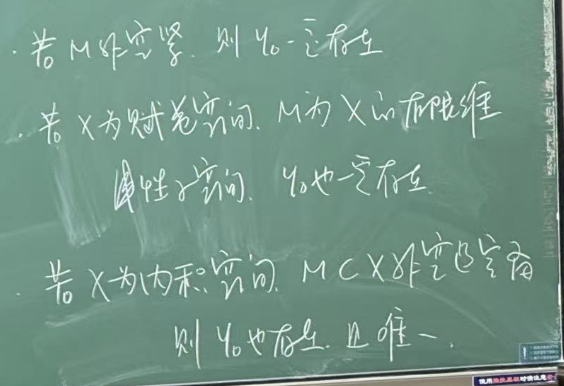 · 若 M 非空紧. 则 y₀ 一定存在
· 若 X 为赋范空间. M 为 X 的有限维
线性子空间. y₀ 也一定存在.
· 若 X 为内积空间. M ⊂ X 非空凸完备
则 y₀ 也存在. 且唯一.